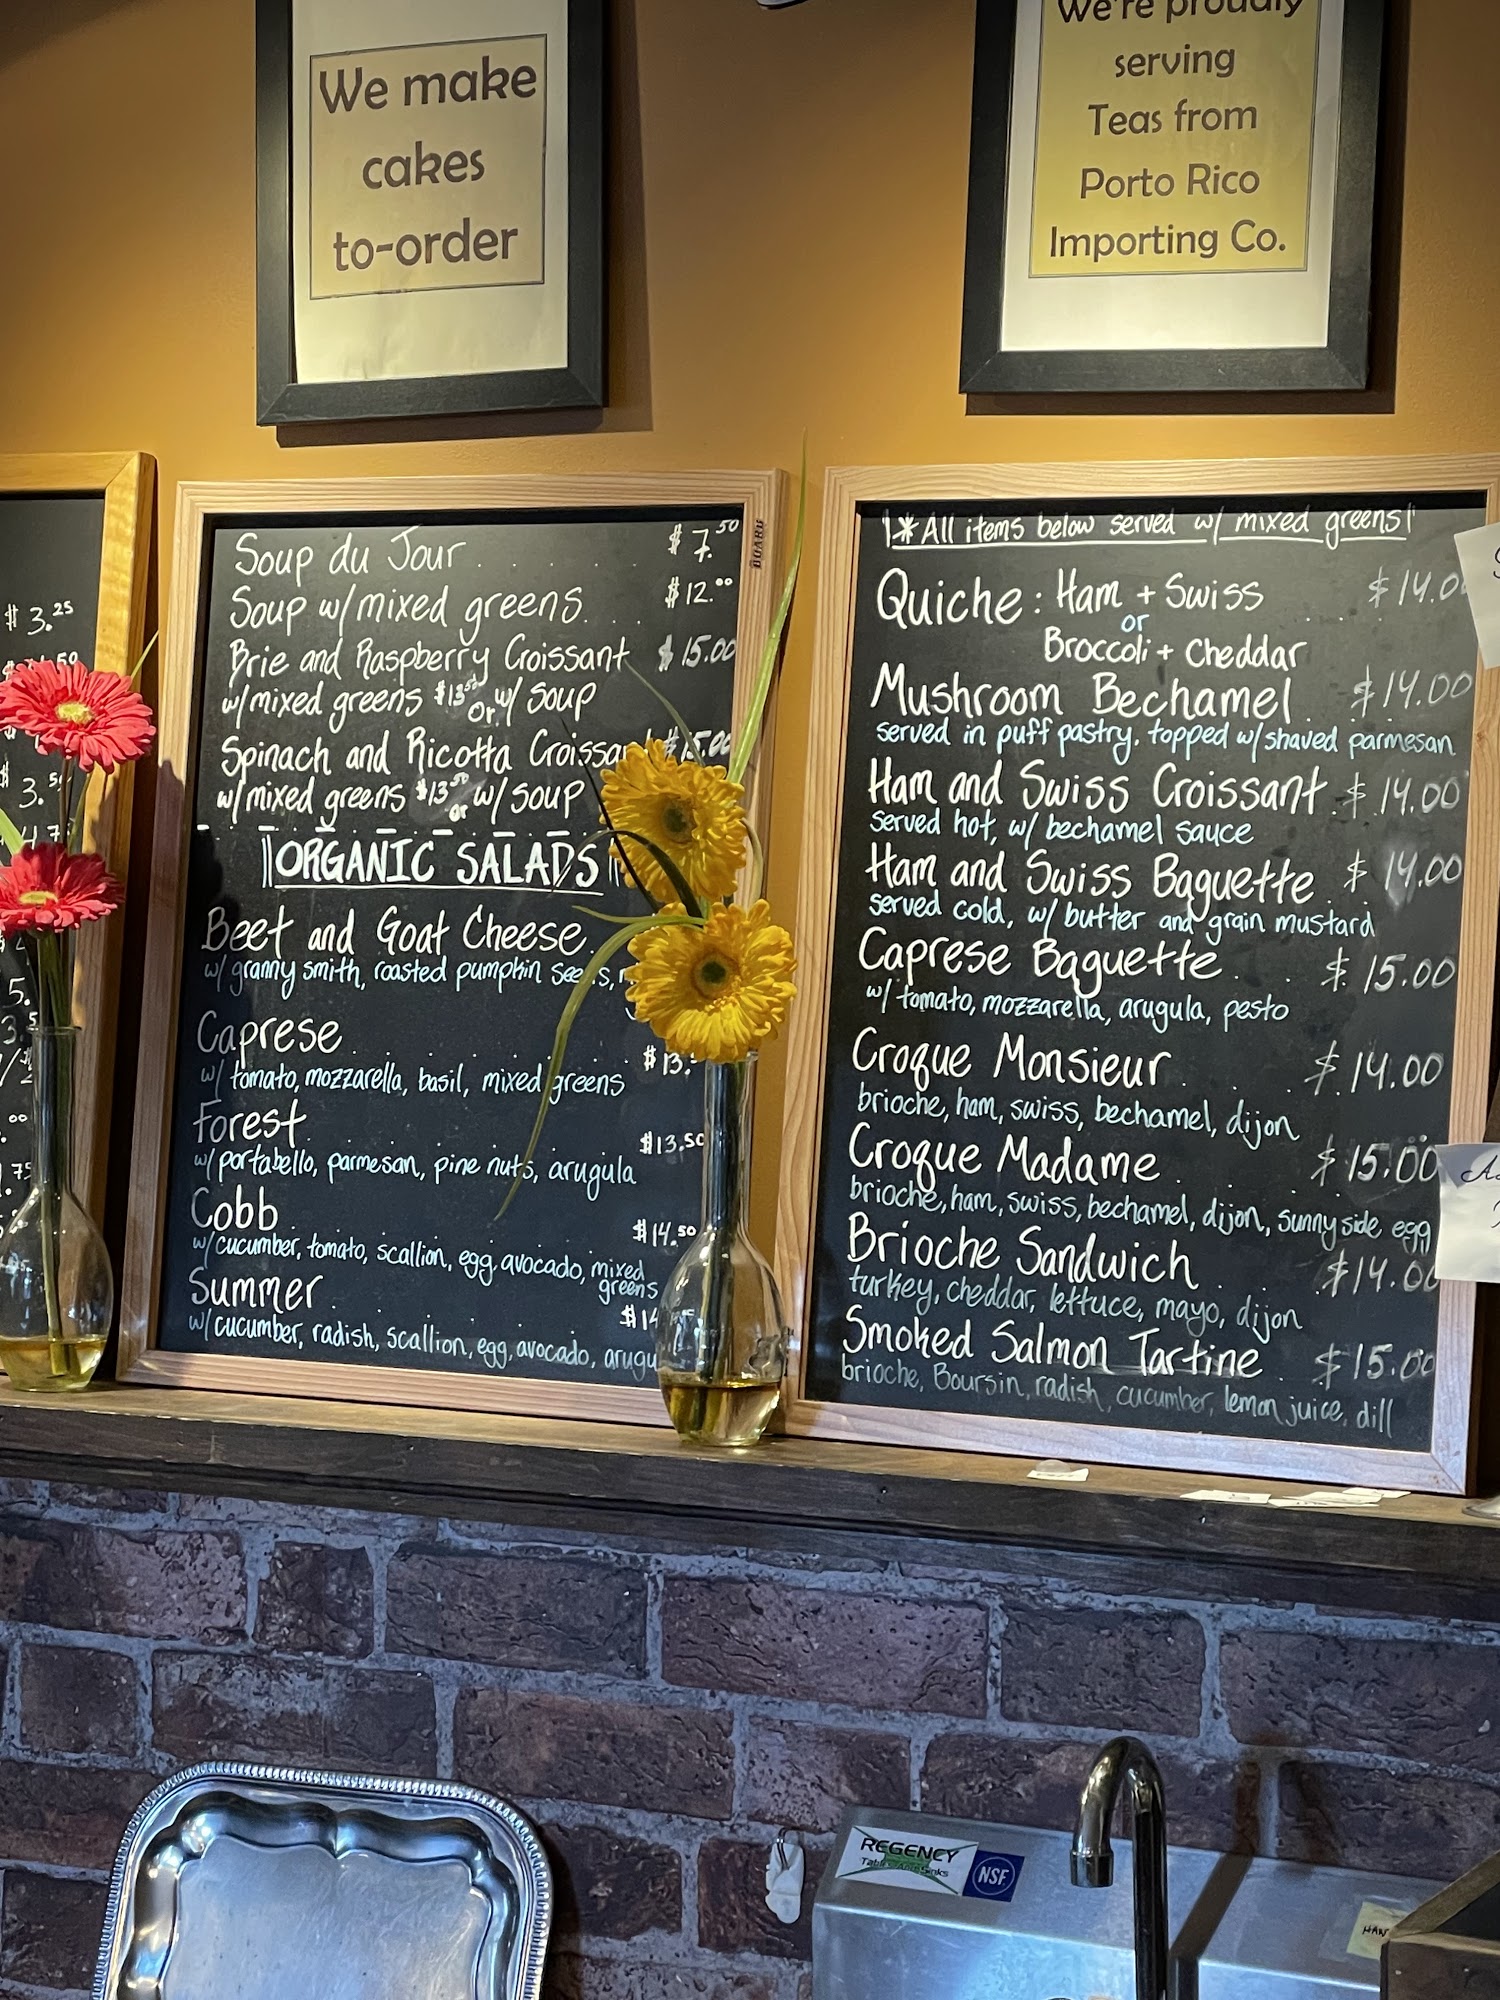 We make
cakes
to-order
We're proudly
serving
Teas from
Porto Rico
Importing Co.
$ 3.25
$ 3.50
Soup du Jour $ 7.50
Soup w/ mixed greens $12.00
Brie and Raspberry Croissant $ 15.00
w/ mixed greens $13.50 or w/ soup
Spinach and Ricotta $15.00
w/ mixed greens $13.50 or w/ soup
ORGANIC SALADS
Beet and Goat Cheese
w/ granny smith, roasted pumpkin
Caprese
w/ tomato, mozzarella, basil, mixed greens
Forest $13.50
w/ portabello, parmesan, pine nuts, arugula
Cobb $14.50
w/ cucumber, tomato, scallion, egg, avocado, mixed
greens
Summer
w/ cucumber, radish, scallion, egg, avocado,
BOARD
*All items below served w/ mixed greens!
Quiche: Ham + Swiss $ 14.00
or
Broccoli + Cheddar
Mushroom Bechamel $14.00
served in puff pastry, topped w/ shaved parmesan
Ham and Swiss Croissant $ 14.00
served hot, w/ bechamel sauce
Ham and Swiss Baguette $ 14.00
served cold, w/ butter and grain mustard
Caprese Baguette $ 15.00
w/ tomato, mozzarella, arugula, pesto
Croque Monsieur $ 14.00
brioche, ham, swiss, bechamel, dijon
Croque Madame $ 15.00
brioche, ham, swiss, bechamel, dijon, sunny side egg
Brioche Sandwich $14.00
turkey, cheddar, lettuce, mayo, dijon
Smoked Salmon Tartine $ 15.00
brioche, Boursin, radish, cucumber, lemon juice, dill
REGENCY
Tables And Sinks
NSF